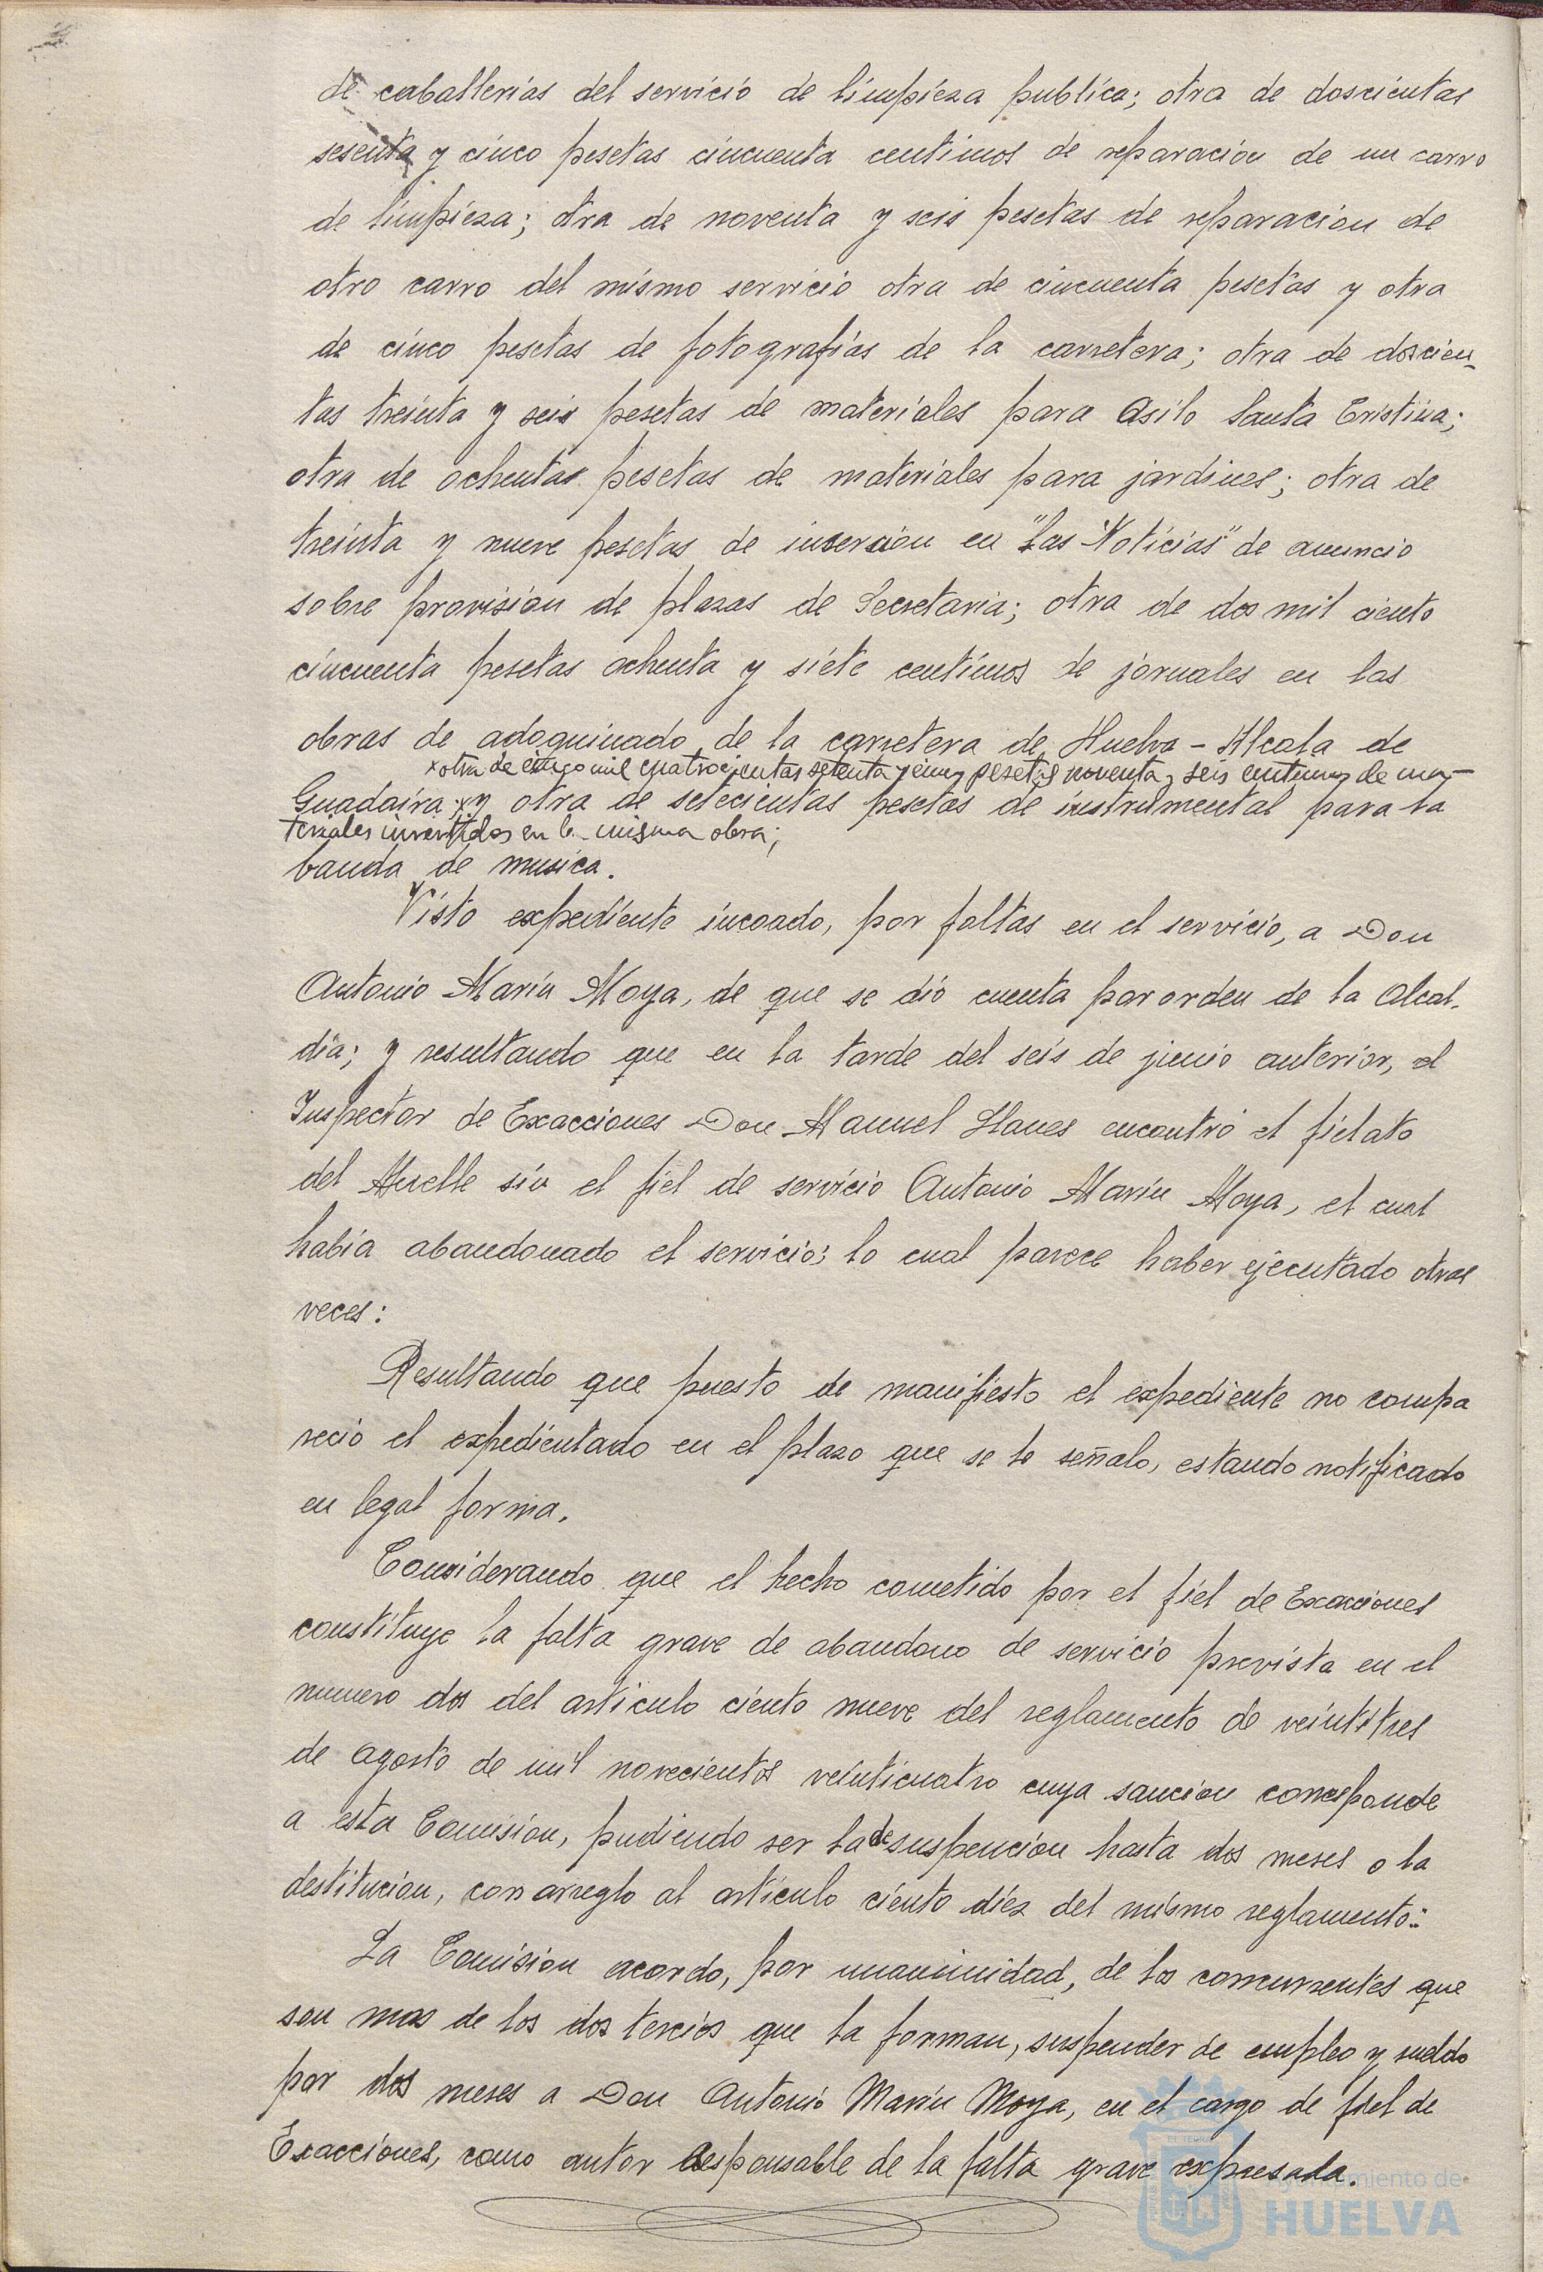 de caballerias del servicio de limpieza publica; otra de doscientas
sesenta y cinco pesetas cincuenta centimos de reparacion de un carro
de limpieza; otra de noventa y seis pesetas de reparacion de
otro carro del mismo servicio otra de cincuenta pesetas y otra
de cinco pesetas de fotografias de la carretera; otra de doscien-
tas treinta y seis pesetas de materiales para Asilo Santa Cristina;
otra de ochentas pesetas de materiales para jardines; otra de
treinta y nueve pesetas de insercion en "Las Noticias" de anuncio
sobre provision de plazas de Secretaria; otra de dos mil ciento
cincuenta pesetas ochenta y siete centimos de jornales en las
obras de adoquinado de la carretera de Huelva - Alcala de
x otra de cinco mil cuatrocientas setenta y cinco pesetas noventa y seis centimos de ma-
Guadaira x y otra de setecientas pesetas de instrumental para la
teriales invertidos en la misma obra;
banda de musica.
Visto expediente incoado, por faltas en el servicio, a Don
Antonio Marin Moya, de que se dió cuenta por orden de la Alcal-
dia; y resultando que en la tarde del seis de junio anterior, el
Inspector de Exacciones Don Manuel Llanes encontró el fielato
del Muelle sin el fiel de servicio Antonio Marin Moya, el cual
habia abandonado el servicio; lo cual parece haber ejecutado otras
veces:
Resultando que puesto de manifiesto el expediente no compa
recio el expedientado en el plazo que se le señalo, estando notificado
en legal forma.
Considerando que el hecho cometido por el fiel de Exacciones
constituye la falta grave de abandono de servicio prevista en el
numero dos del articulo ciento nueve del reglamento de veintitres
de Agosto de mil novecientos veinticuatro cuya sancion corresponde
a esta Comision, pudiendo ser la de suspencion hasta dos meses o la
destitucion, con arreglo al articulo ciento diez del mismo reglamento:
La Comision acordo, por unanimidad, de los concurrentes que
son mas de los dos tercios que la forman, suspender de empleo y sueldo
por dos meses a Don Antonio Marin Moya, en el cargo de fiel de
Exacciones, como autor responsable de la falta grave expresada.
Ayuntamiento de
HUELVA